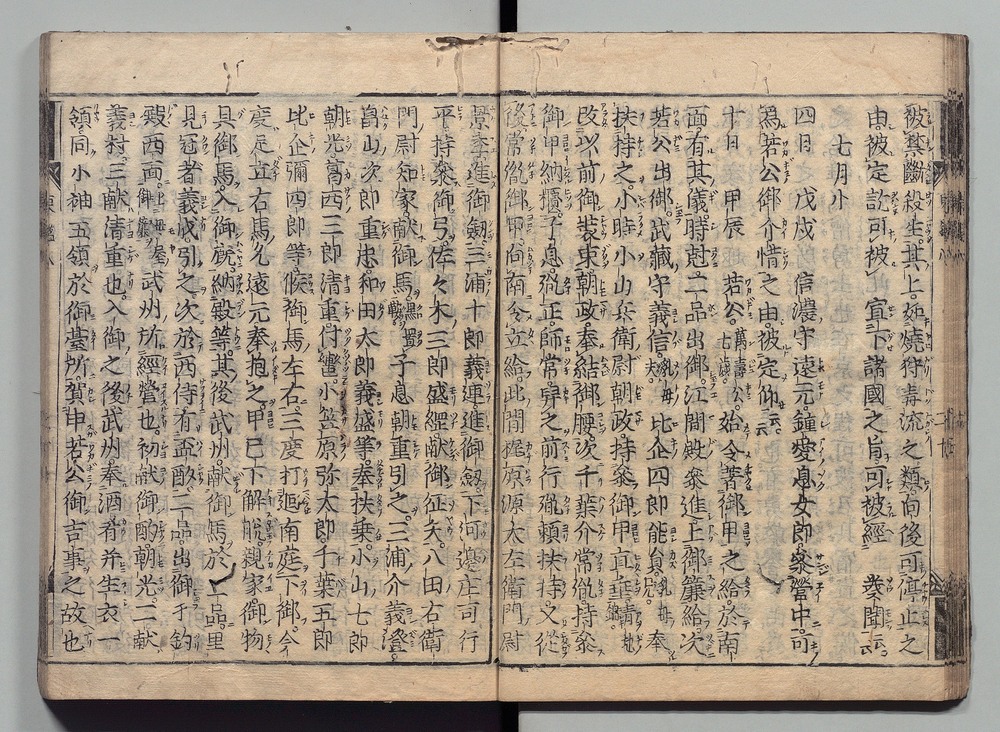 被禁斷殺生其上如燒狩毒流之類向後可停止之
由被定訖可被 宣下諸國之旨可被經 奏聞云云
七月小
四日 戊戌 信濃守遠元鐘愛息女即參營中可
爲若公御介惜之由被定仰云云
十日 甲辰 若公萬壽公七歲始令著御甲之給於南
面有其儀時尅二品出御江間殿參進上御簾給次
若公出御武藏守義信乳母夫比企四郎能員乳母兄奉
扶持之小時小山兵衞尉朝政持參御甲直垂青地錦
改以前御裝束朝政奉結御腰次千葉介常胤持參
御甲納櫃子息胤正師常舁之前行胤頼扶持又從
後常胤御甲向南令立給此間梶原源太左衞門尉
景季進御劔三浦十郎義連進御釼下河邊庄司行
平持參御弓佐々木三郎盛經獻御征矢八田右衛
門尉知家獻御馬黑置鞍子息朝重引之三浦介義澄
畠山次郎重忠和田太郎義盛等奉扶乗小山七郎
朝光葛西三郎清重付轡小笠原弥太郎千葉五郎
比企彌四郎等候御馬左右三度打廻南庭下御今
度足立右馬允遠元奉抱之甲已下解脱親家御物
具御馬入御厩納殿等其後武州献御馬於二品里
見冠者義成引之次於西侍有盃酌二品出御于釣
殿西面上御簾母屋武州所經營也初献御酌朝光二献
義村三献清重也入御之後武州奉酒肴并生衣一
領同小袖五領於御臺所賀申若公御吉事之故也